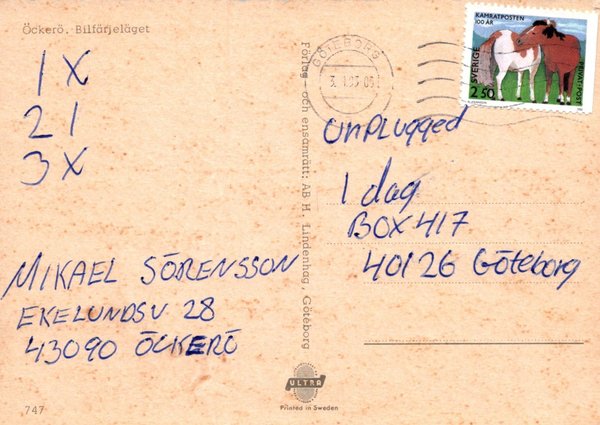 Öckerö. Bilfärjeläget
1 X
2 1
3 X
MIKAEL SÖRENSSON
EKELUNDSV 28
43090 ÖCKERÖ
747
Förlag- och ensamrätt: AB H. Lindenhag, Göteborg
ULTRA
Printed in Sweden
GÖTEBORG
KAMRATPOSTEN
100 ÅR
SVERIGE
PRIVATPOST
2.50
UNPLUGGED
1 dag
BOX 417
40126 Göteborg